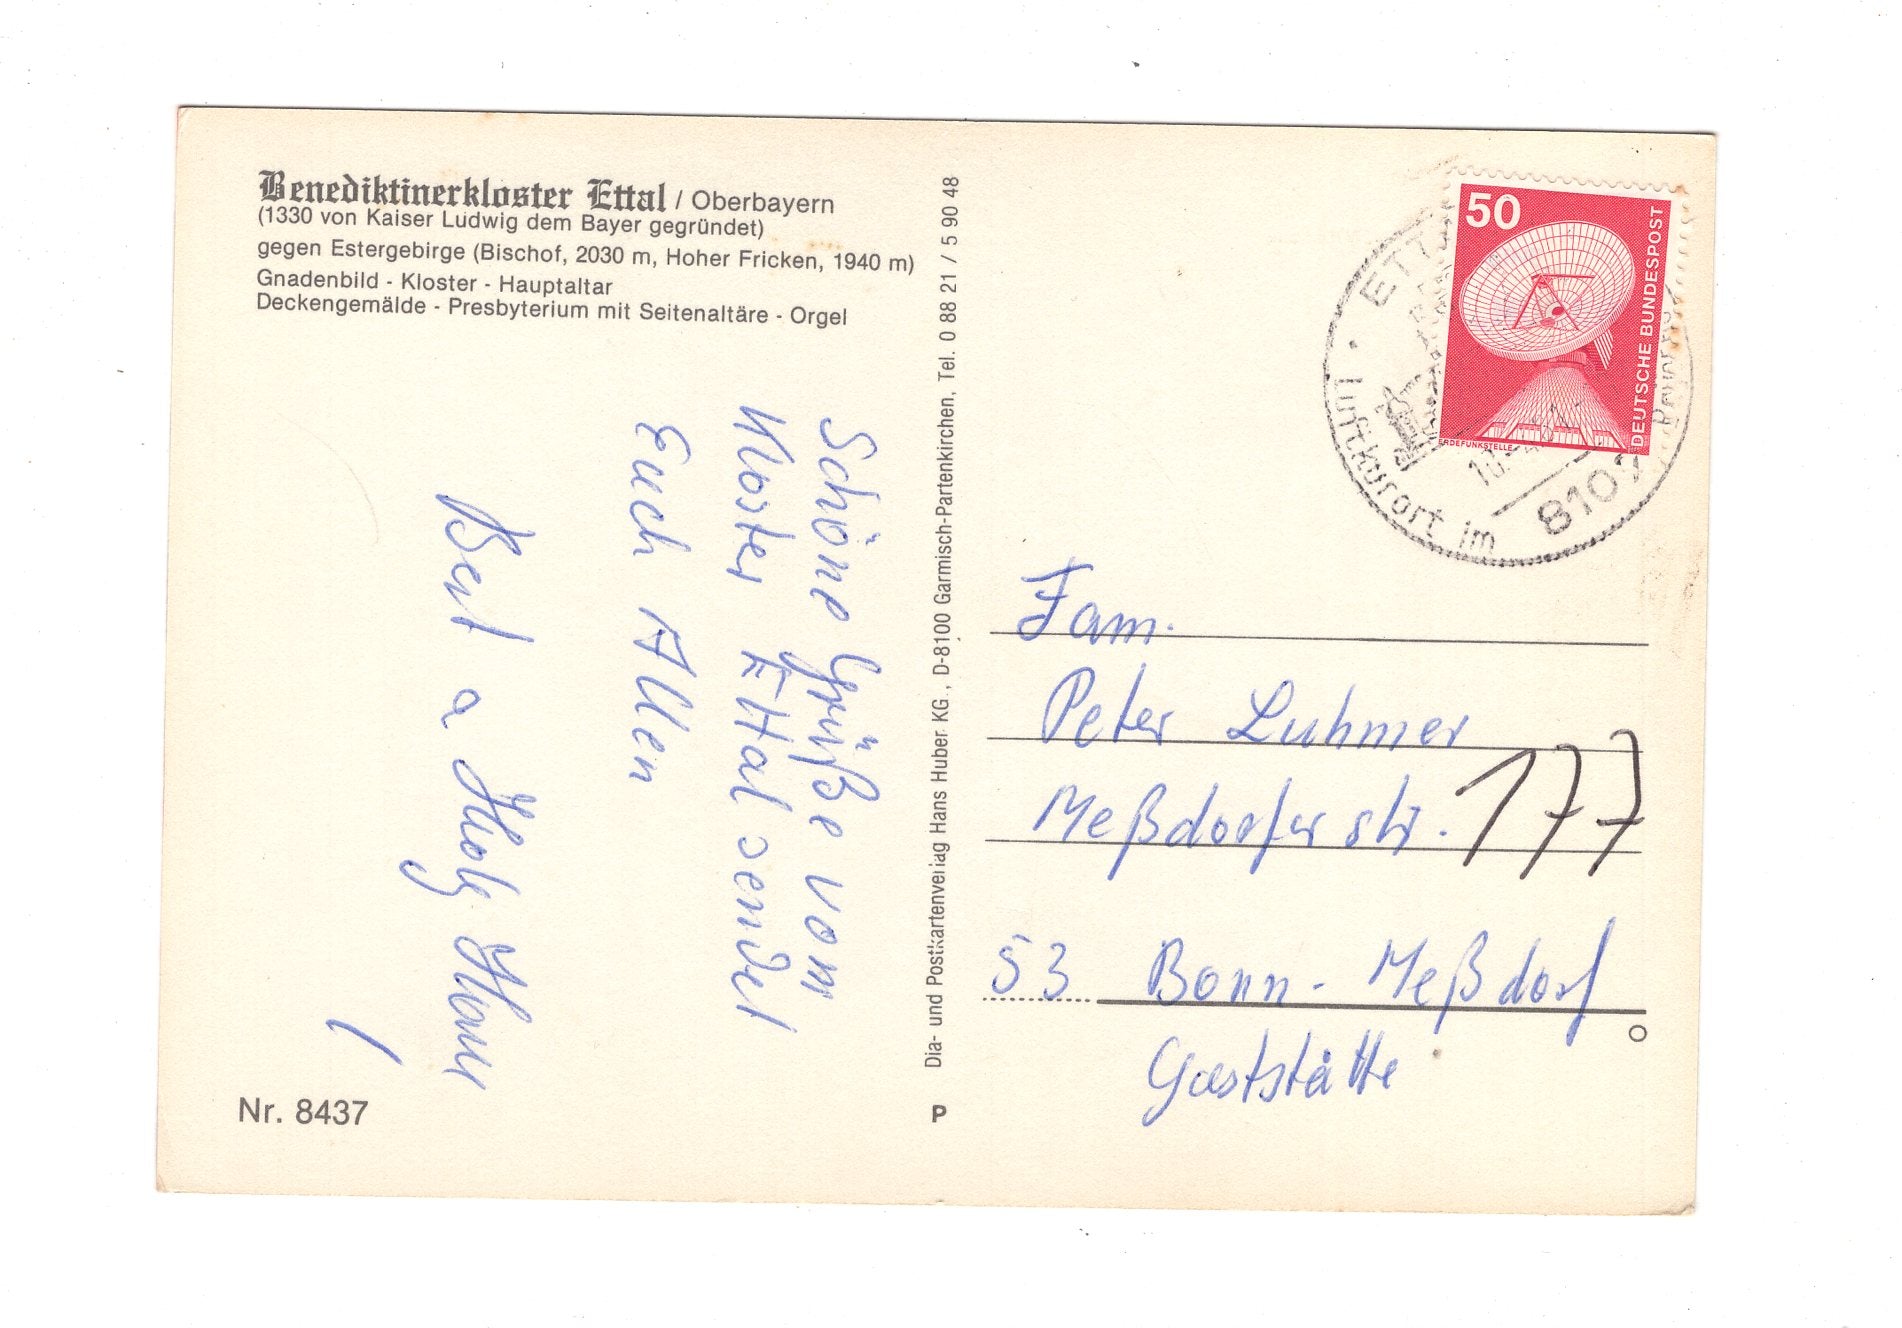 Benediktinerkloster Ettal / Oberbayern
(1330 von Kaiser Ludwig dem Bayer gegründet)
gegen Estergebirge (Bischof, 2030 m, Hoher Fricken, 1940 m)
Gnadenbild - Kloster - Hauptaltar
Deckengemälde - Presbyterium mit Seitenaltäre - Orgel
Schöne Grüße vom
Kloster Ettal sendet
Euch Allen
Nr. 8437
Dia- und Postkartenverlag Hans Huber KG., D-8100 Garmisch-Partenkirchen, Tel. 0 88 21 / 5 90 48
P
50
DEUTSCHE BUNDESPOST
ERDEFUNKSTELLE
Luftkurort im
8107
Fam.
Peter Luhmer
Meßdorfer str. 177
53 Bonn - Meßdorf
Gaststätte